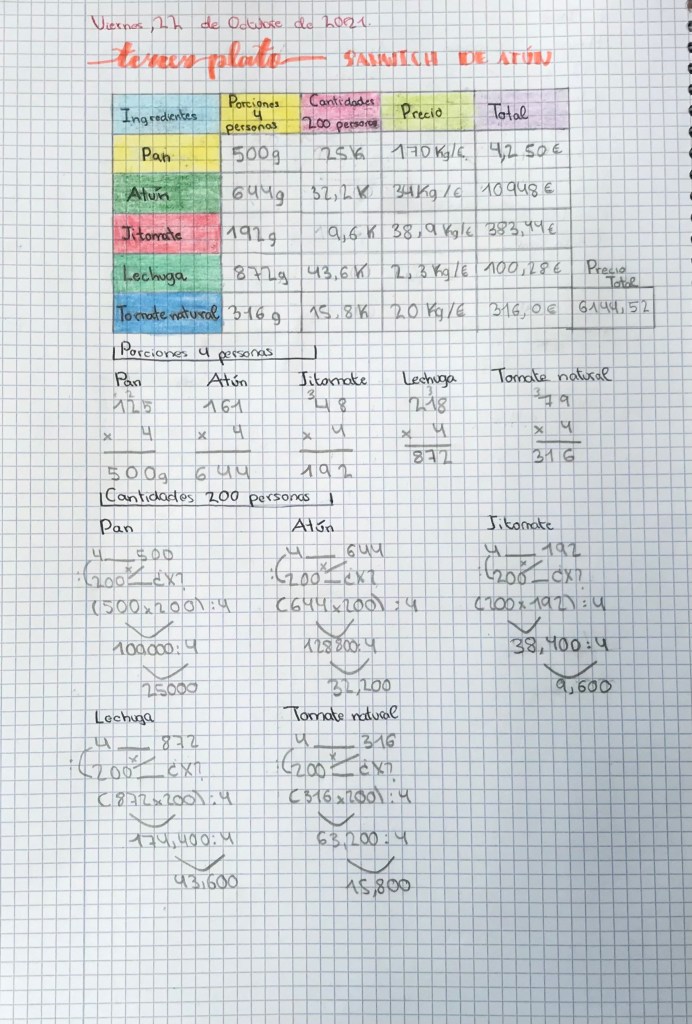 Viernes, 22 de Octubre de 2021.
tercer plato SANWICH DE ATÚN
Ingredientes Porciones 4 personas Cantidades 200 personas Precio Total
Pan 500g 25K 170Kg/€ 4,250€
Atún 644g 32,2K 34Kg/€ 10948€
Jitomate 192g 9,6K 38,9Kg/€ 383,44€
Lechuga 872g 43,6K 2,3Kg/€ 100,28€ Precio Total
Tomate natural 316g 15,8K 20Kg/€ 316,0€ 6144,52
Porciones 4 personas
Pan Atún Jitomate Lechuga Tomate natural
2 3 3 3
125 161 48 218 79
x 4 x 4 x 4 x 4 x 4
500g 644 192 872 316
Cantidades 200 personas
Pan Atún Jitomate
4 500 4 644 4 192
:(200 x ¿X? :(200 x ¿X? :(200 x ¿X?
(500x200):4 (644x200):4 (200x192):4
100000:4 128800:4 38,400:4
25000 32,200 9,600
Lechuga Tomate natural
4 872 4 316
:(200 x ¿X? :(200 x ¿X?
(872x200):4 (316x200):4
174,400:4 63,200:4
43,600 15,800